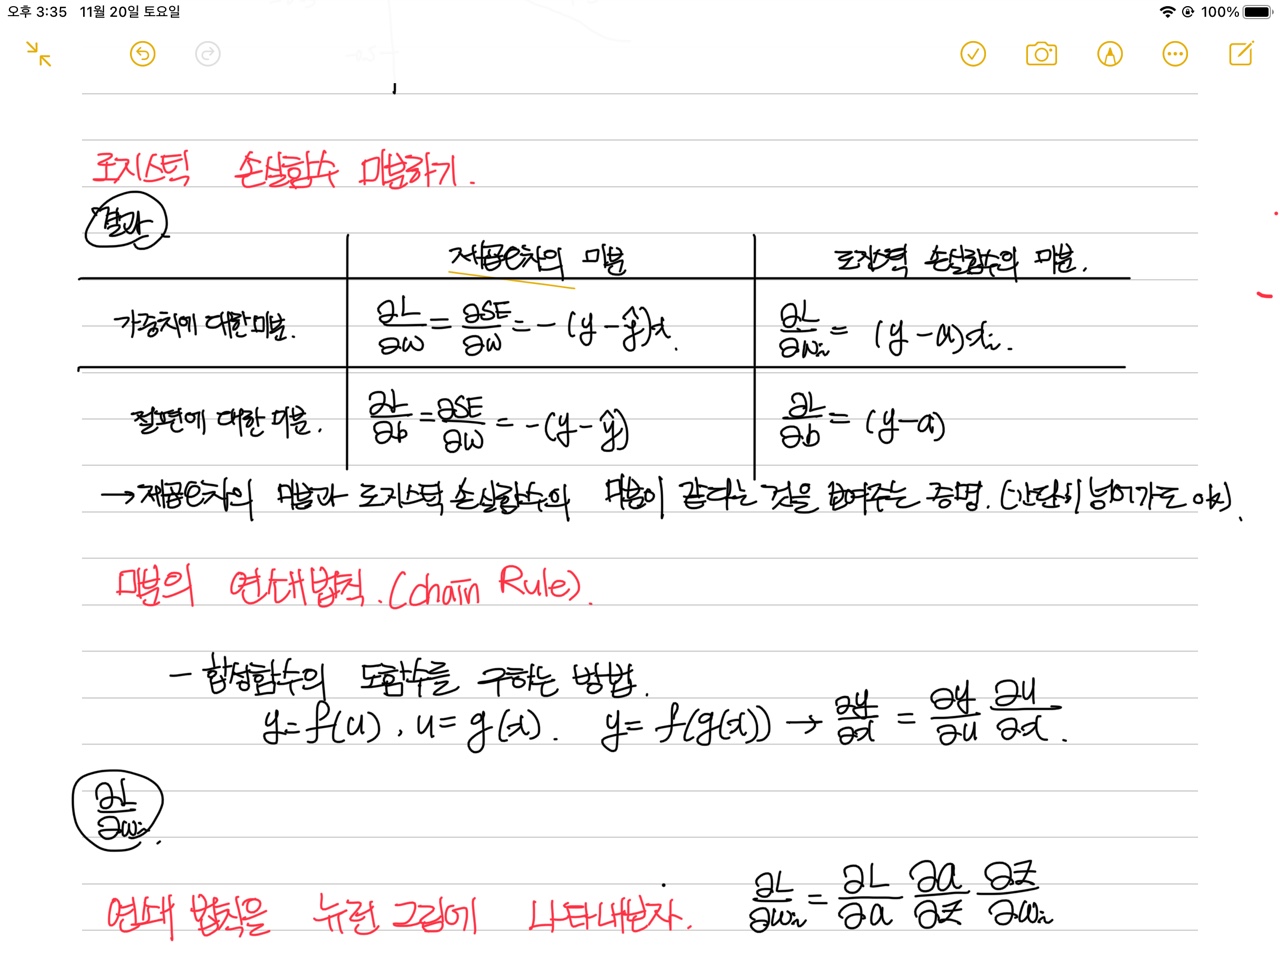 오후 3:35 11월 20일 토요일 100%
로지스틱 손실함수 미분하기.
결과
제곱오차의 미분 로지스틱 손실함수의 미분.
가중치에 대한 미분. ∂L/∂w = ∂SE/∂w = -(y-ŷ)x. ∂L/∂wᵢ = (y-a)xᵢ.
절편에 대한 미분. ∂L/∂b = ∂SE/∂w = -(y-ŷ) ∂L/∂b = (y-a)
→ 제곱오차의 미분과 로지스틱 손실함수의 미분이 같다는 것을 보여주는 증명. (간단히 넘어가도 야).
미분의 연쇄법칙. (Chain Rule).
- 합성함수의 도함수를 구하는 방법.
y=f(u), u=g(x). y=f(g(x)) → ∂y/∂x = ∂y/∂u ∂u/∂x.
∂L/∂wᵢ.
연쇄 법칙을 뉴런 그림에 나타내보자. ∂L/∂wᵢ = ∂L/∂a ∂a/∂z ∂z/∂wᵢ